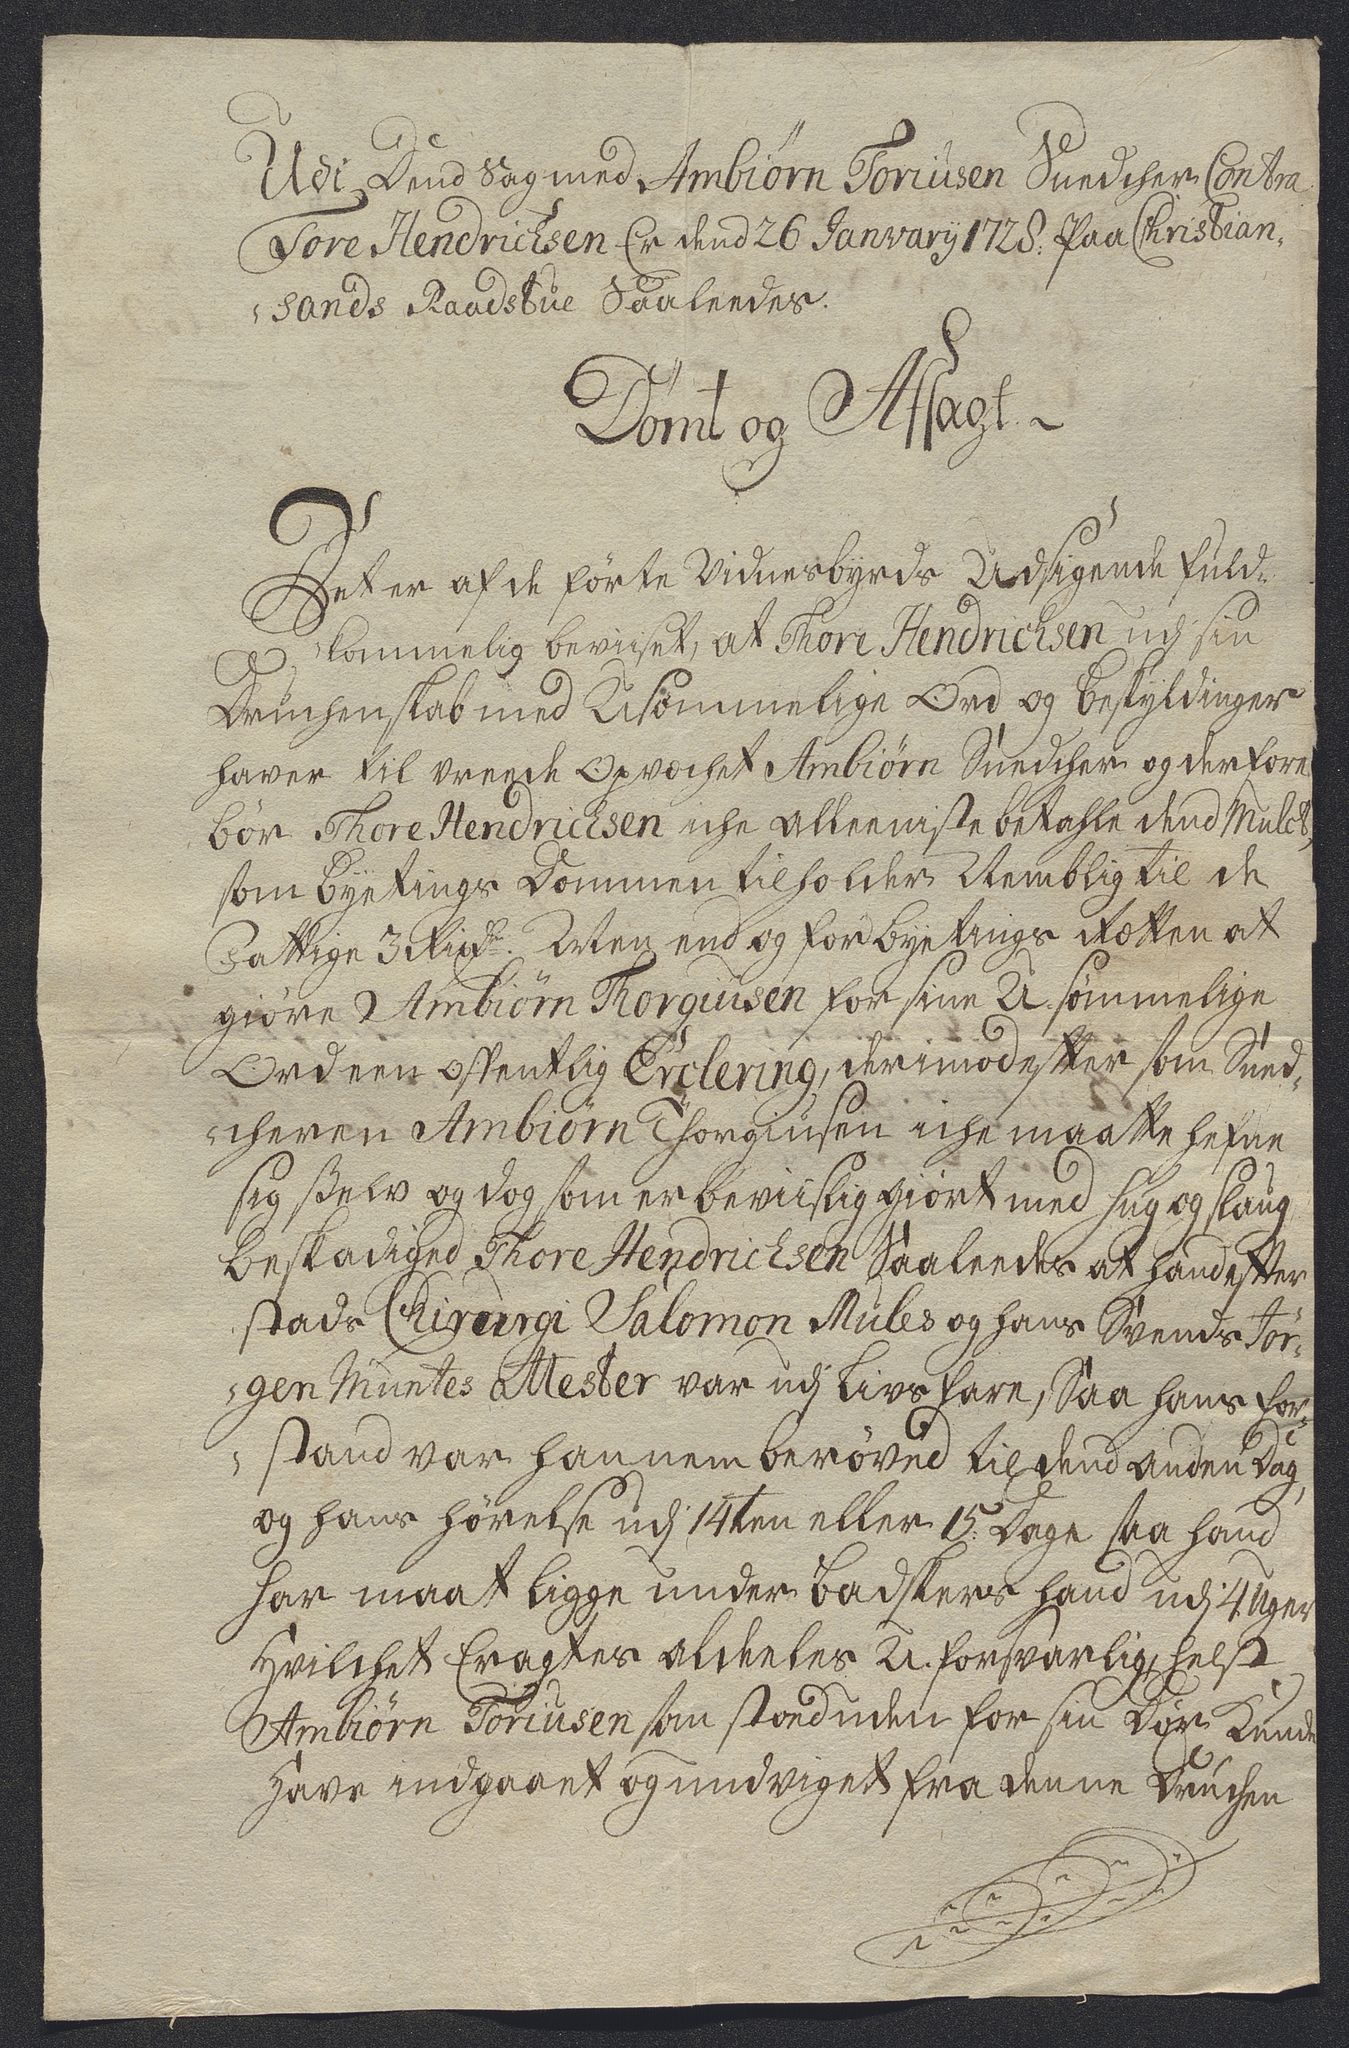 Udi Dend Sag med Ambiörn Toriusen Snedcher Contra
Tore Hendrichsen Er dend 26 Janvarij 1728. Paa Christian-
sands Raadstue Saaleedes.
Dömt og Afsagt.
Det er af de förte Vidnesbyrds Udsigende fuld-
kommelig beviiset, at Thore Hendrichsen udj sin
Druchenskab med Usömmelige Ord og beskyldinger
haver til vreede Opvechet Ambiörn Snedcher og derfore
bör Thore Hendrichsen iche alleeniste betahle dend Mulct,
som byetings Dommen tilholder Nemblig til de
Fattige 3 Rixdr. Men end og for byetings Retten at
giöre Ambiörn Thorguisen for sine U.sömmelige
Ord een offentlig Erclering, derimod efter som Sned-
cheren Ambiörn Thorgiusen iche maatte hefne
sig self og dog som er beviislig giört med hug og slaug
beskadiged Thore Hendrichsen Saaleedes at hand efter
stads Chirurgi Salomon Mules og hans Svends Jör-
gen Muntes Attester var udj Livs fare, Saa hans for-
stand var hannem berövid til dend anden Dag,
og hans hörelse udj 14ten eller 15. Dage saa hand
har maat ligge under badskers haand udj 4 Uger
Hvilchet Eragtes aldeeles U.forsvarlig, helst
Ambiörn Toriusen som stoed uden for sin Dör Kunde
Have indgaaet og undviget fra denne Druchen